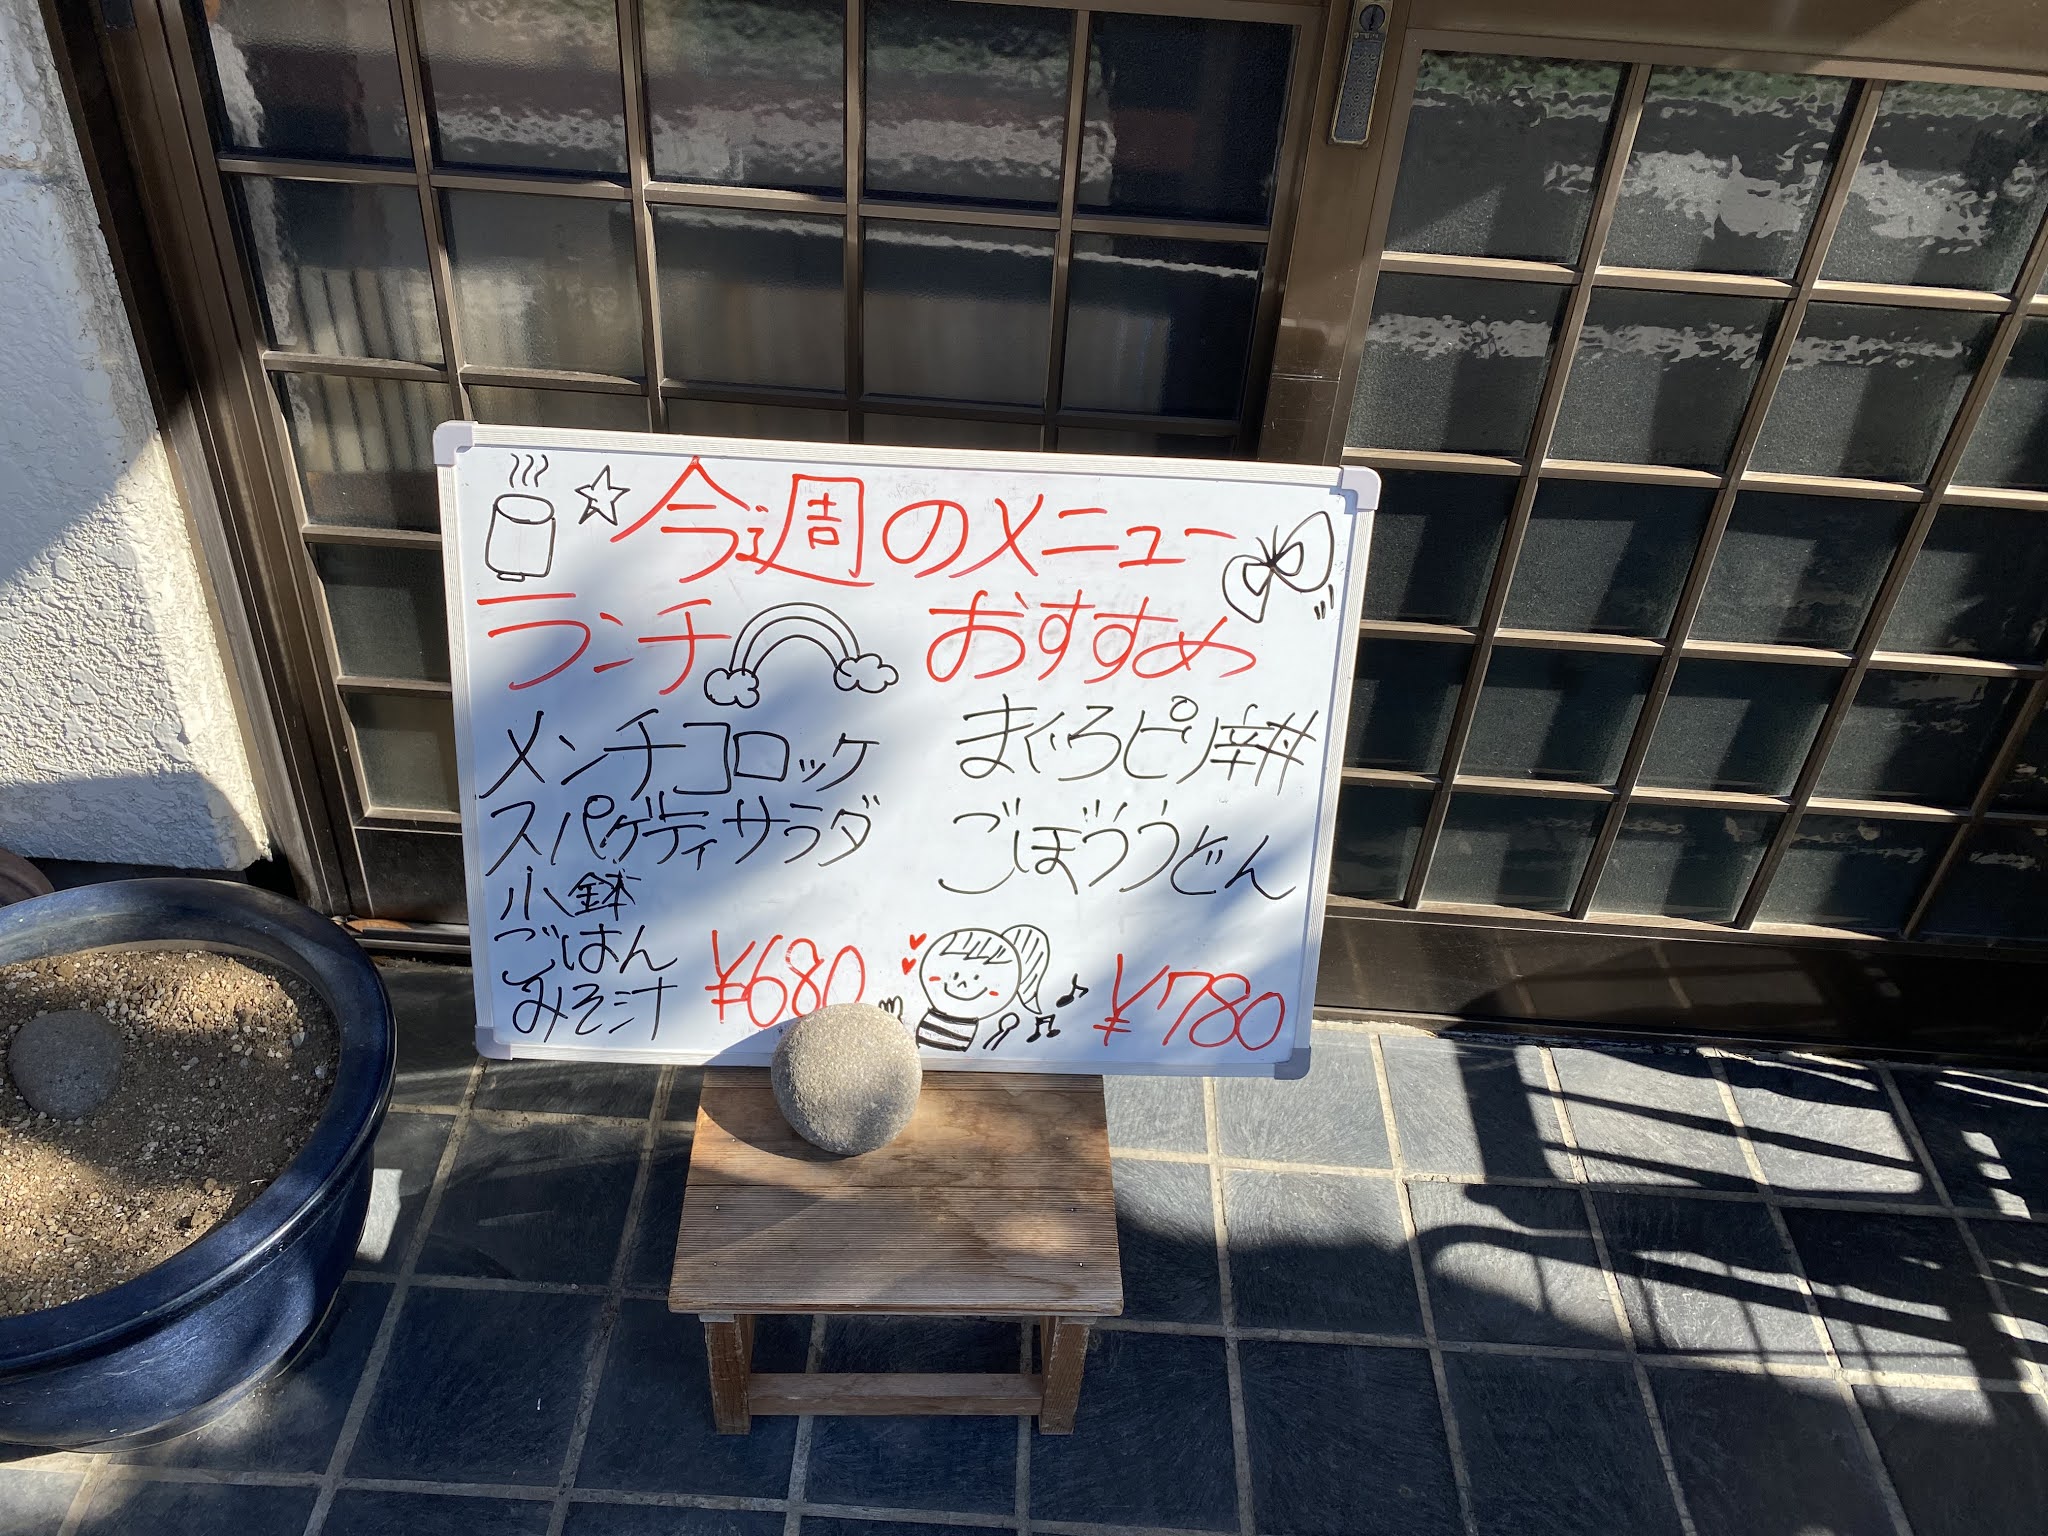 今週のメニュー
ランチ
メンチコロッケ
スパゲティサラダ
小鉢
ごはん
みそ汁
¥680
おすすめ
まぐろピリ辛丼
ごぼううどん
¥780